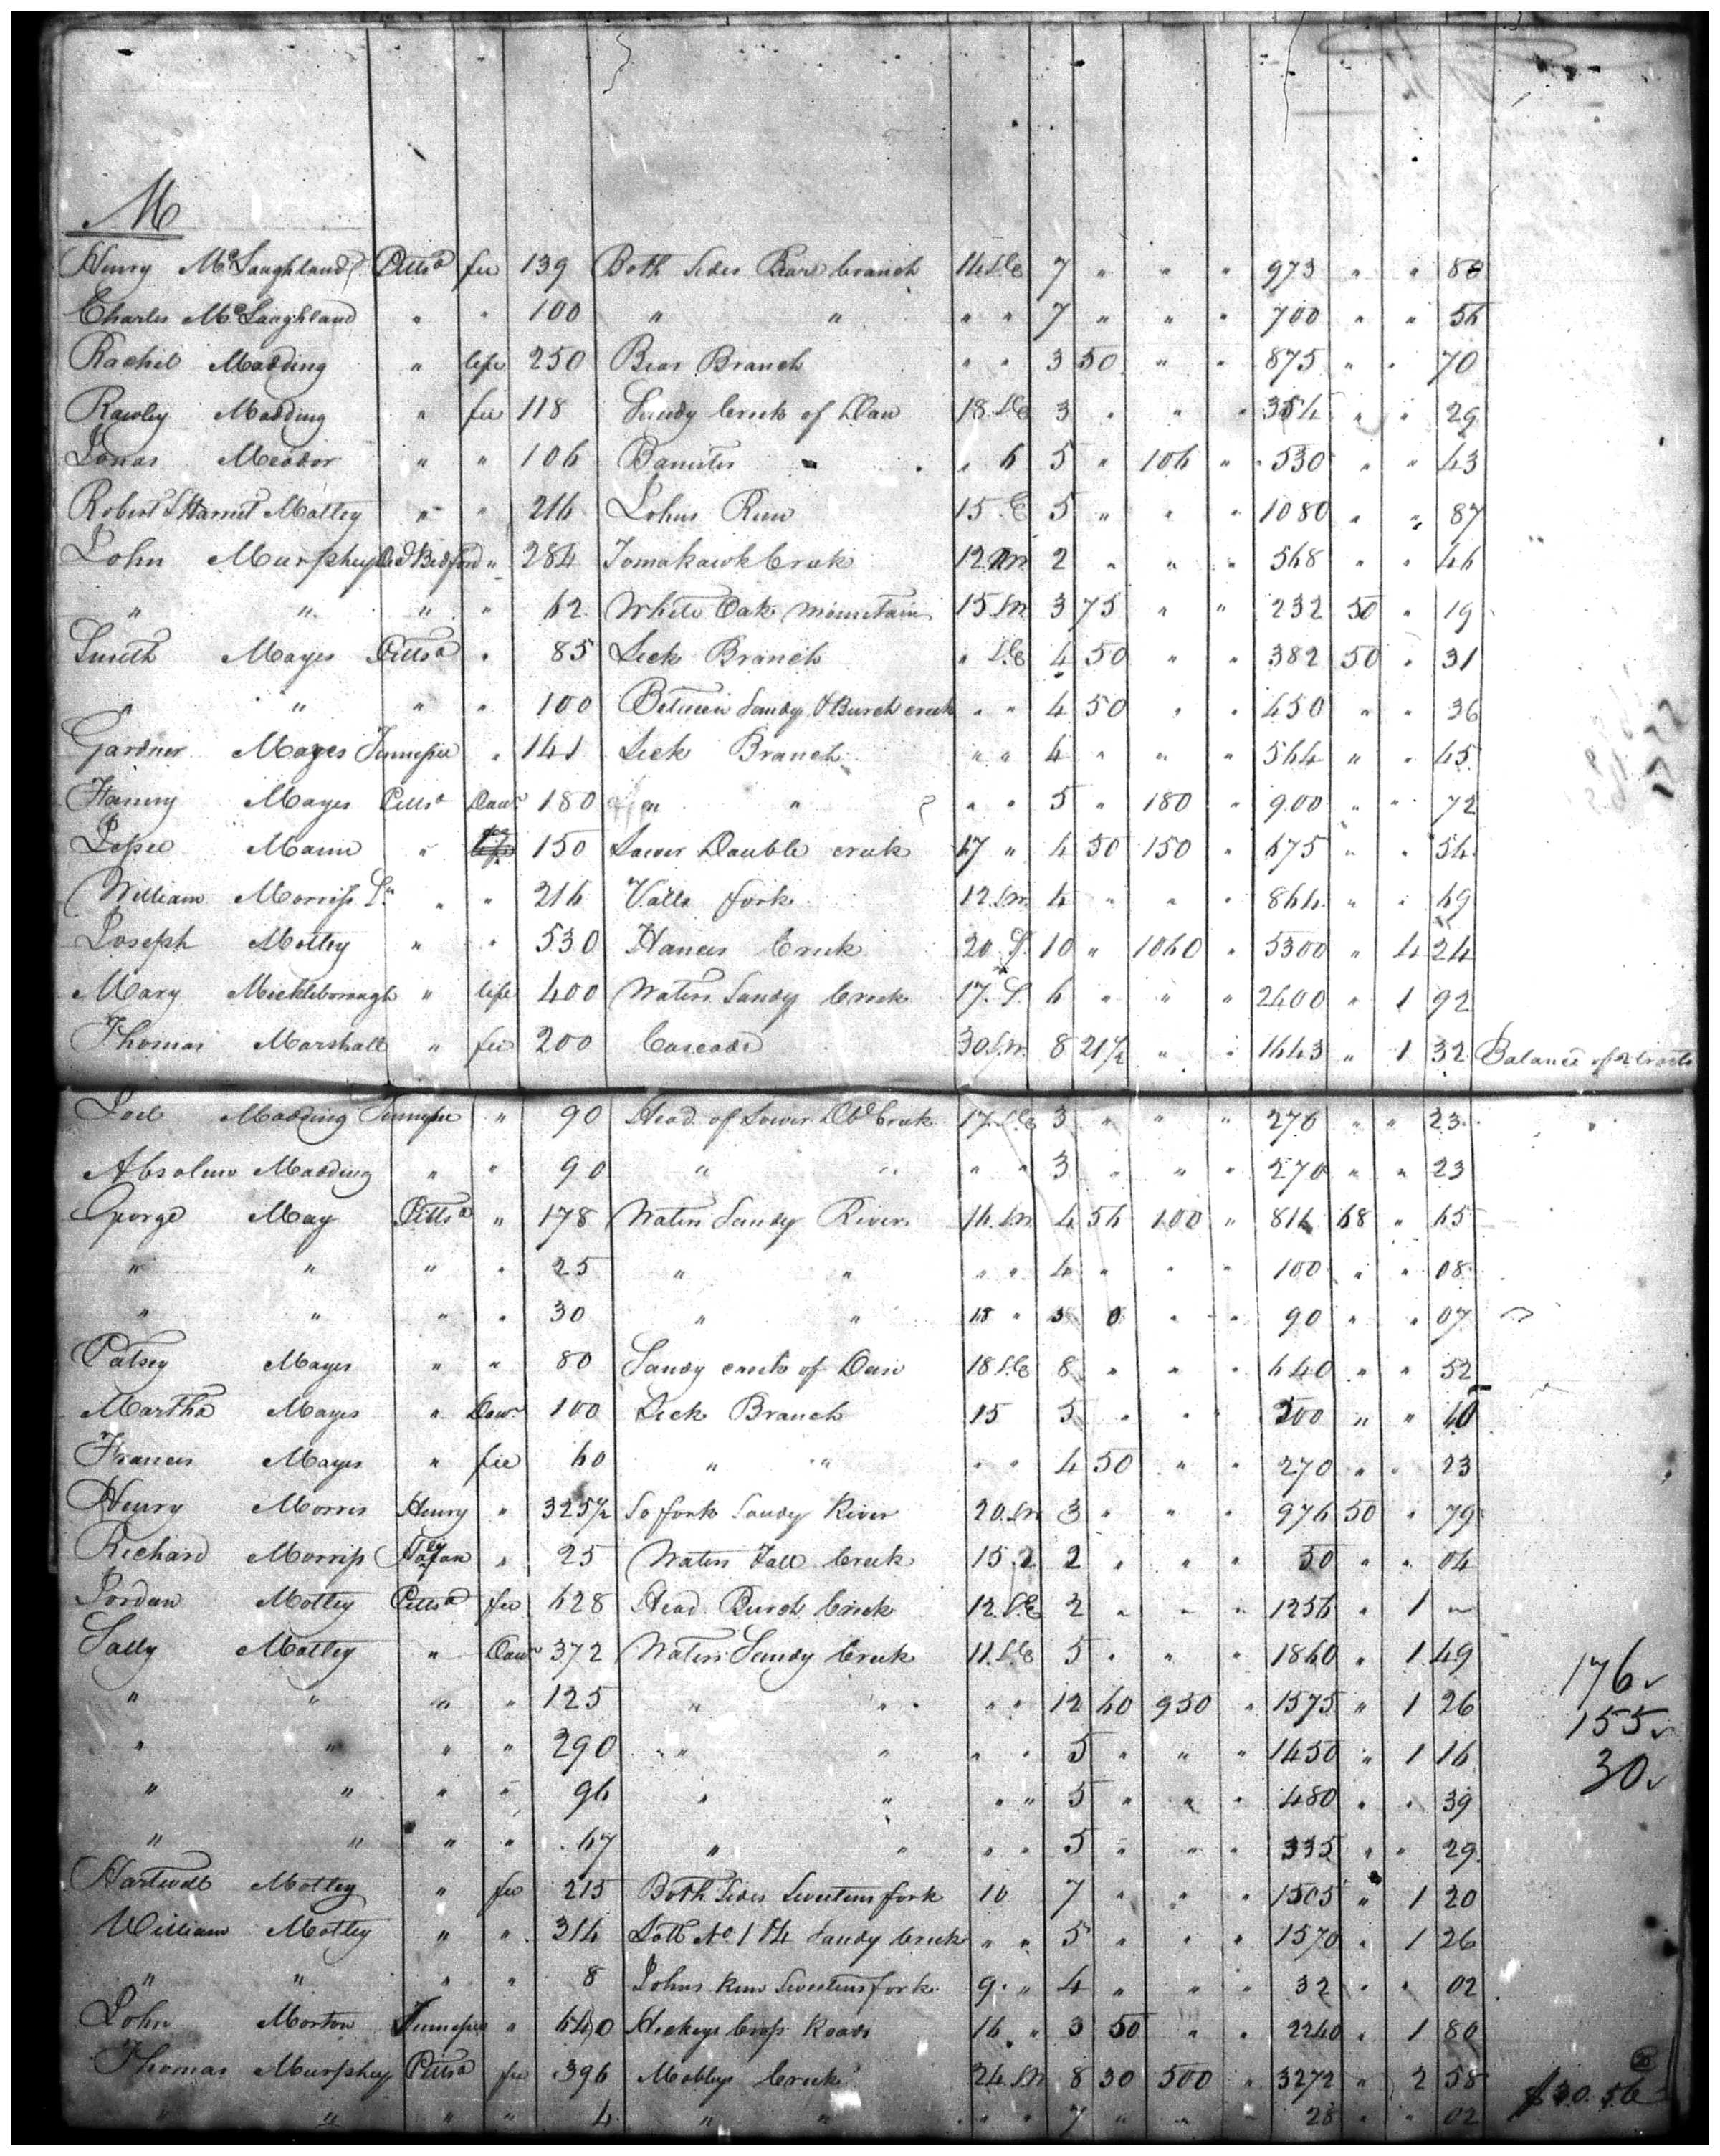 M
Henry McLaughland Pittsa fee 139 Both Sides Bear branch 14 S.E 7 " " " 973 " " 80
Charles McLaughland " " 100 " " " " 7 " " " 700 " " 56
Rachel Madding " life 250 Bear Branch " " 3 50 " " 875 " " 70
Rawley Madding " fee 118 Sandy Creek of Dan 18 S.E 3 " " " 354 " " 29
Jonas Meador " " 106 Banister " 6 5 " 106 " 530 " " 43
Robert & Harriet Motley " " 216 Johns Run 15 E 5 " " " 1080 " " 87
John Murphey Bedford " 284 Tomahawk Creek 12 2 " " " 568 " " 46
" " " " 62 White Oak Mountain 15 S.W 3 75 " " 232 50 " 19
Smith Mayes Pittsa " 85 Lick Branch " S.E 4 50 " " 382 50 " 31
" " " " 100 Between Sandy & Burch creek " " 4 50 " " 450 " " 36
Gardner Mayes Tennessee " 141 Lick Branch " " 4 " " " 564 " " 45
Mayes Pittsa Dowr 180 " " " " 5 " 180 " 900 " " 72
Jesse Mann " 150 Lower Double creek 17 " 4 50 150 " 675 " " 54
William Morriss Sr " " 216 Falls fork 12 S.W 4 " " " 864 " " 69
Joseph Motley " " 530 Frances Creek 20 S. 10 " 1060 " 5300 " 4 24
Mary Mickleborough " life 400 Waters Sandy Creek 17 S. 6 " " " 2400 " 1 92
Thomas Marshall " fee 200 Cascade 30 S.W 8 21½ " " 1643 " 1 32 Balance of 2 tracts
Joel Madding Tennessee " 90 Head of Lower Dbl Creek 17 S.E 3 " " " 270 " " 23
Absolum Madding " " 90 " " " " 3 " " " 270 " " 23
George May Pittsa " 178 Waters Sandy River 16 S.W 4 56 100 " 811 68 " 65
" " " " 25 " " " " 4 " " " 100 " " 08
" " " " 30 " " 18 " 3 0 " " 90 " " 07
Patsey Mayes " " 80 Sandy creek of Dan 18 S.E 8 " " " 640 " " 52
Martha Mayes " Dowr 100 Lick Branch 15 5 " " " 500 " " 40
Francis Mayes " fee 60 " " " " 4 50 " " 270 " " 23
Henry Morris Henry " 325½ So fork Sandy River 20 S.W 3 " " " 976 50 " 79
Richard Morriss " 25 Waters Fall Creek 15 2 2 " " " 50 " " 04
Jordan Motley Pittsa fee 628 Head Burch Creek 12 S.E 2 " " " 1256 " 1 "
Sally Motley " Dowr 372 Waters Sandy Creek 11 S.E 5 " " " 1860 " 1 49
" " " " 125 " " " " 12 60 950 " 1575 " 1 26
176
155
" " " " 290 " " " " 5 " " " 1450 " 1 16
30
" " " " 96 " " " " 5 " " " 480 " " 39
" " " " 67 " " " " 5 " " " 335 " " 29
Hartwell Motley " fee 215 Both Sides Sweetens fork 10 7 " " " 1505 " 1 20
William Motley " " 314 Lott No. 1 & 4 Sandy Creek " " 5 " " " 1570 " 1 26
" " " " 8 Johns Run Sweetens fork 9 " 4 " " " 32 " " 02
John Morton Tennessee " 640 Hickeys Cross Roads 16 " 3 50 " " 2240 " 1 80
Thomas Murphey Pittsa fee 396 Mobleys Creek 24 S.W 8 30 500 " 3272 " 2 58 $30.56
" " " " 4 " " " " 7 " " " 28 " " 02